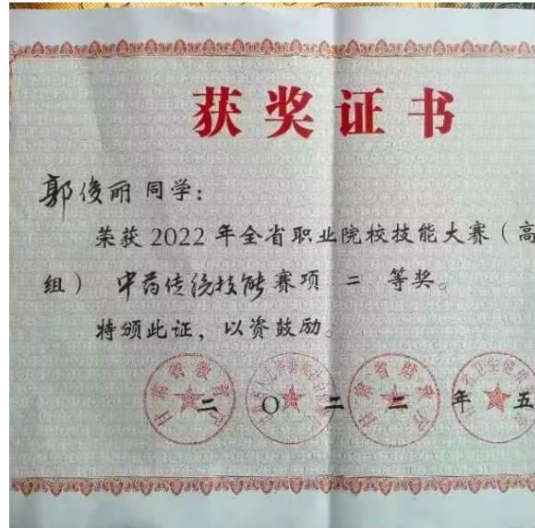 获奖证书
郭俊丽 同学：
荣获 2022 年全省职业院校技能大赛（高
组） 中药传统技能赛项 二 等奖。
特颁此证，以资鼓励。
二〇二二年五